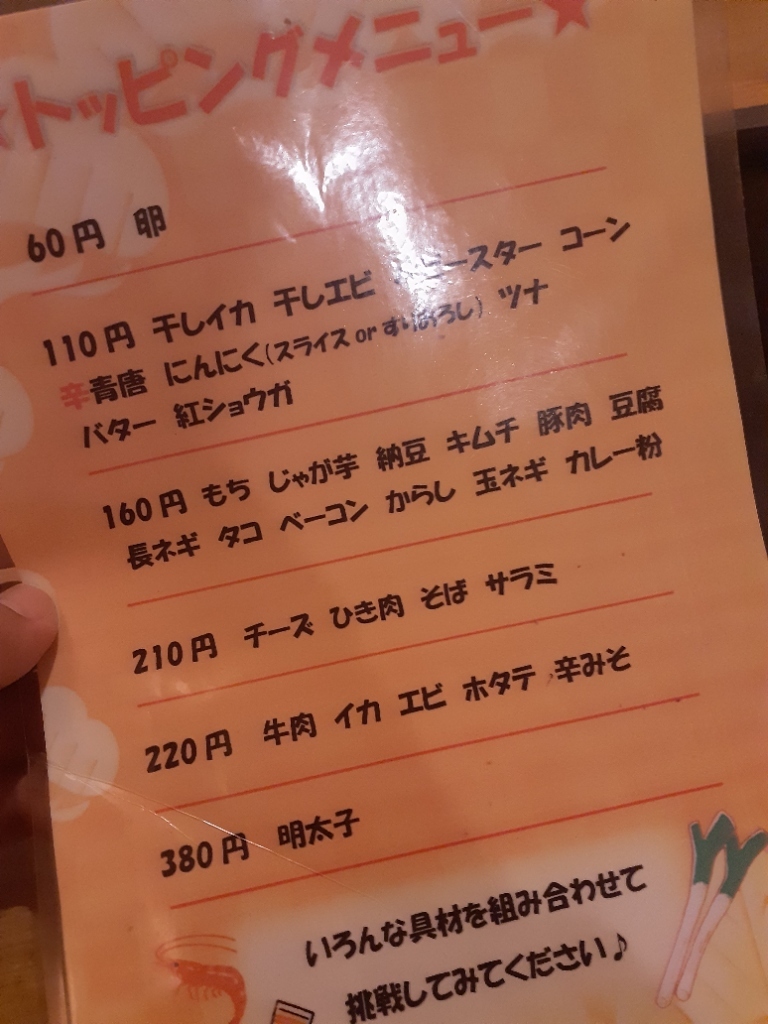 ★トッピングメニュー★
60円 卵
110円 干しイカ 干しエビ ベビースター コーン
辛青唐 にんにく(スライス or すりおろし) ツナ
バター 紅ショウガ
160円 もち じゃが芋 納豆 キムチ 豚肉 豆腐
長ネギ タコ ベーコン からし 玉ネギ カレー粉
210円 チーズ ひき肉 そば サラミ
220円 牛肉 イカ エビ ホタテ 辛みそ
380円 明太子
いろんな具材を組み合わせて
挑戦してみてください♪